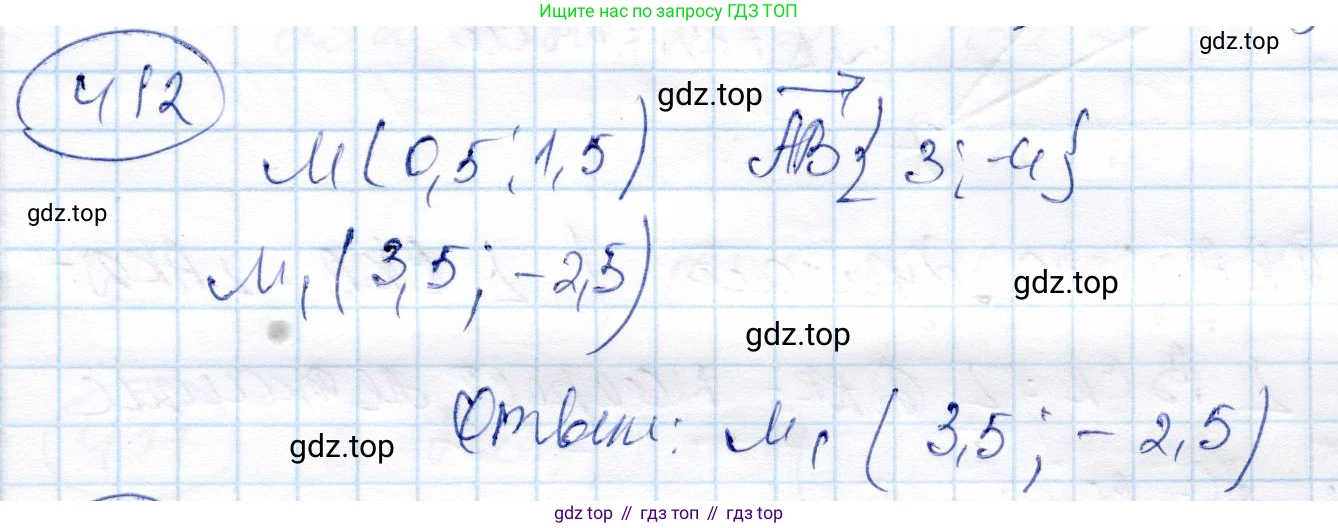 Ищите нас по запросу ГДЗ ТОП
gdz.top
412
gdz.top
M(0,5; 1,5) AB{3; -4}
gdz.top
M₁(3,5; -2,5)
gdz.top
gdz.top
Ответ: M₁(3,5; -2,5)
gdz.top
gdz top // гдз топ // гдз top